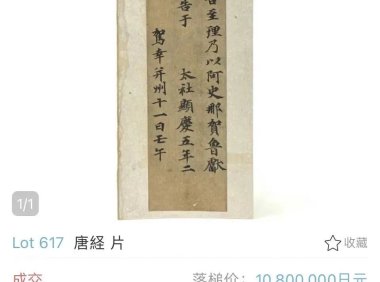 至理乃以阿史那賀魯獻
告于　太社顯慶五年二
駕幸并州十一日壬午
1/1
Lot 617 唐経 片
收藏
成交
落槌价：10,800,000日元